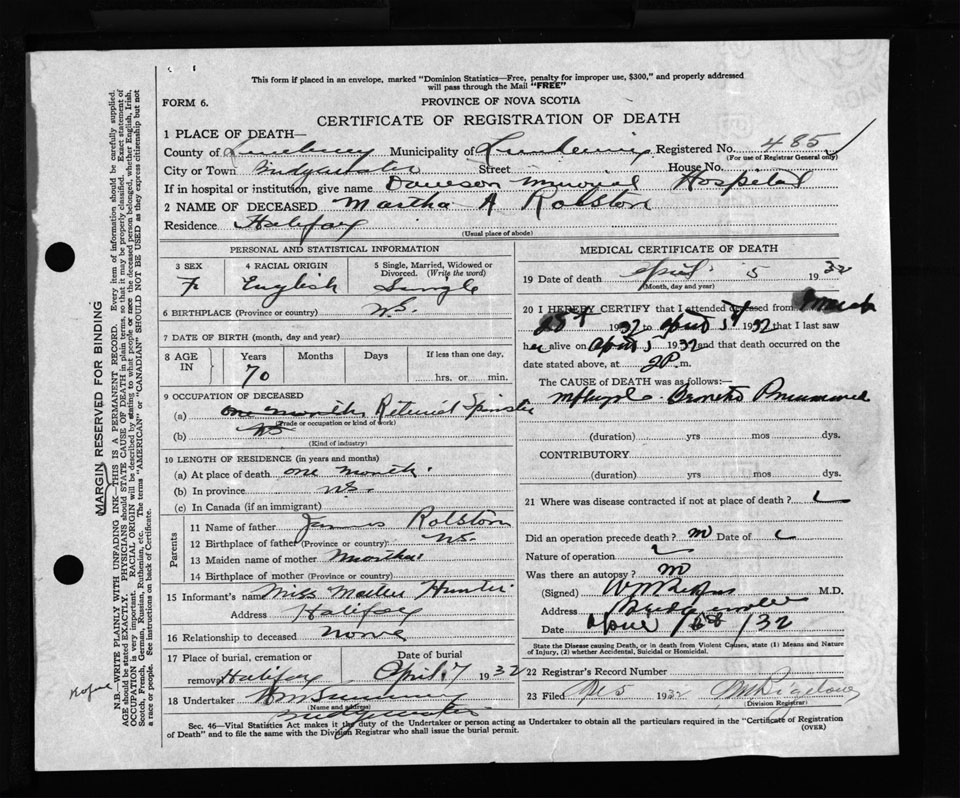 This form if placed in an envelope, marked "Dominion Statistics—Free, penalty for improper use, $300," and properly addressed
will pass through the Mail "FREE"
FORM 6.
PROVINCE OF NOVA SCOTIA
CERTIFICATE OF REGISTRATION OF DEATH
1 PLACE OF DEATH—
County of Lunenburg Municipality of Registered No. 485
(For use of Registrar General only)
City or Town Bridgewater Street House No.
If in hospital or institution, give name Dawson Memorial Hospital
2 NAME OF DECEASED Martha A Rolston
Residence Halifax
(Usual place of abode)
PERSONAL AND STATISTICAL INFORMATION
3 SEX 4 RACIAL ORIGIN 5 Single, Married, Widowed or
Divorced. (Write the word)
F English Single
6 BIRTHPLACE (Province or country) NS.
7 DATE OF BIRTH (month, day and year)
8 AGE IN Years Months Days If less than one day,
70 hrs. or min.
9 OCCUPATION OF DECEASED
(a) one months Retired Spinster
(Trade or occupation or kind of work)
(b) NS
(Kind of industry)
10 LENGTH OF RESIDENCE (in years and months)
(a) At place of death one month
(b) In province NS.
(c) In Canada (if an immigrant)
Parents
11 Name of father James Rolston
12 Birthplace of father (Province or country) NS.
13 Maiden name of mother Martha
14 Birthplace of mother (Province or country)
15 Informant's name Miss Hunter
Address Halifax
16 Relationship to deceased none
17 Place of burial, cremation or Date of burial
removal Halifax April 7 1932
18 Undertaker
(Name and address)
Bridgewater
MEDICAL CERTIFICATE OF DEATH
19 Date of death April 5 1932
(Month, day and year)
20 I HEREBY CERTIFY that I attended deceased from March
1932 to April 1932 that I last saw
her alive on April 1932 and that death occurred on
date stated above, at 2 P. m.
The CAUSE of DEATH was as follows:—
(duration) yrs mos dys.
CONTRIBUTORY
(duration) yrs mos dys.
21 Where was disease contracted if not at place of death?
Did an operation precede death? no Date of
Nature of operation
Was there an autopsy? no
(Signed) M.D.
Address Bridgewater
Date April /32
State the Disease causing Death, or in death from Violent Causes, state (1) Means and Nature
of Injury, (2) whether Accidental, Suicidal or Homicidal.
22 Registrar's Record Number
23 Filed 5 1932
(Division Registrar)
Sec. 46—Vital Statistics Act makes it the duty of the Undertaker or person acting as Undertaker to obtain all the particulars required in the "Certificate of Registration
of Death" and to file the same with the Division Registrar who shall issue the burial permit. (OVER)
MARGIN RESERVED FOR BINDING
N.B.—WRITE PLAINLY WITH UNFADING INK—THIS IS A PERMANENT RECORD. Every item of information should be carefully supplied.
AGE should be stated EXACTLY. PHYSICIANS should STATE CAUSE OF DEATH in plain terms, so that it may be properly classified. Exact statement of
OCCUPATION is very important. RACIAL ORIGIN will be described by stating to what people or race the deceased person belonged, whether English, Irish,
Scotch, French, German, Russian, Ruthenian, etc. The terms "AMERICAN" or "CANADIAN" SHOULD NOT BE USED as they express citizenship but not
a race or people. See instructions on back of Certificate.